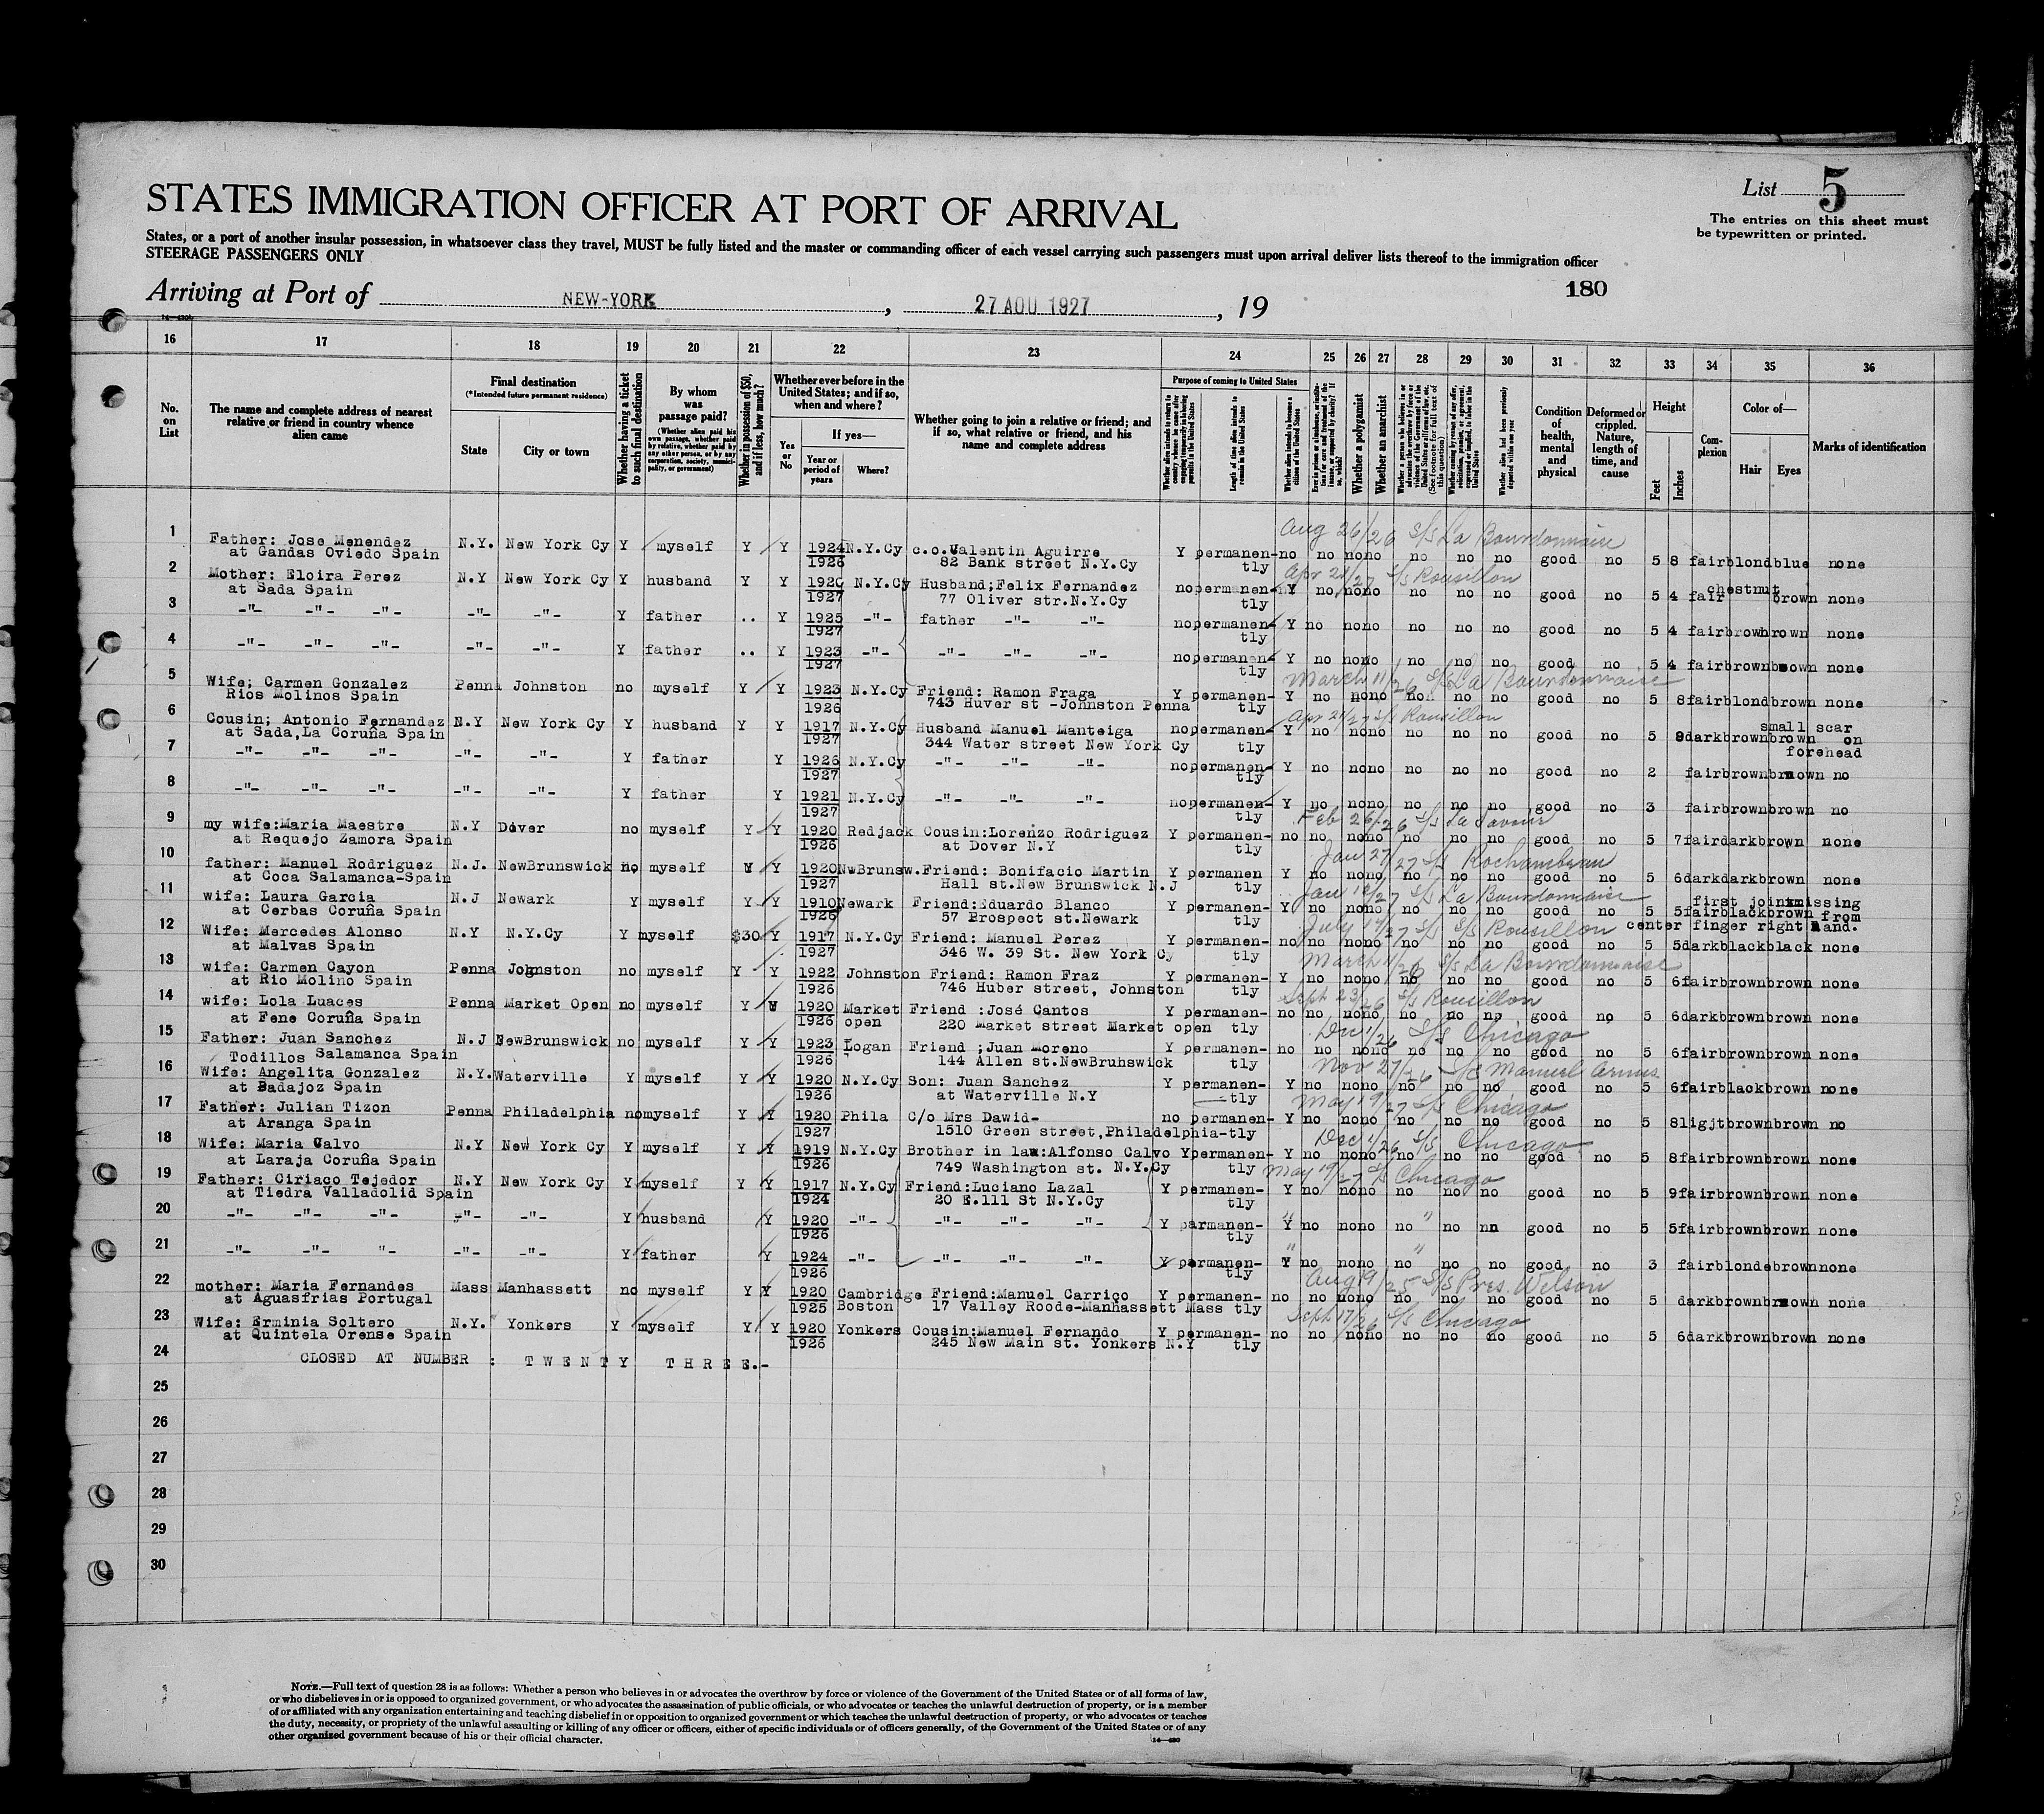 List 5
The entries on this sheet must
be typewritten or printed.
STATES IMMIGRATION OFFICER AT PORT OF ARRIVAL
States, or a port of another insular possession, in whatsoever class they travel, MUST be fully listed and the master or commanding officer of each vessel carrying such passengers must upon arrival deliver lists thereof to the immigration officer
STEERAGE PASSENGERS ONLY
180
Arriving at Port of NEW-YORK, 27 AOU 1927, 19
16 17 18 19 20 21 22 23 24 25 26 27 28 29 30 31 32 33 34 35 36
No. on List
The name and complete address of nearest relative or friend in country whence alien came
Final destination
(*Intended future permanent residence)
State
City or town
Whether having a ticket to such final destination
By whom was passage paid?
(Whether alien paid his own passage, whether paid by relative, whether paid by any other person, or by any corporation, society, municipality, or government)
Whether in possession of $50, and if less, how much?
Whether ever before in the United States; and if so, when and where?
Yes or No
If yes—
Year or period of years
Where?
Whether going to join a relative or friend; and if so, what relative or friend, and his name and complete address
Purpose of coming to United States
Length of time alien intends to remain in the United States
Whether alien intends to become a citizen of the United States
Whether a polygamist
Whether an anarchist
Whether alien had been previously deported within one year
Condition of health, mental and physical
Deformed or crippled. Nature, length of time, and cause
Height
Feet
Inches
Complexion
Color of—
Hair
Eyes
Marks of identification
Aug 26/26 S/S La Bourdonnaise
1 Father: Jose Menendez N.Y. New York Cy Y myself Y Y 1924 N.Y.Cy c.o.Valentin Aguirre Y permanen- no no no no no no no good no 5 8 fair blond blue none
at Gandas Oviedo Spain 1926 82 Bank street N.Y.Cy tly
Apr 21/27 S/S Rousillon
2 Mother: Eloira Perez N.Y New York Cy Y husband Y Y 1920 N.Y.Cy Husband;Felix Fernandez no permanen- Y no no no no no no good no 5 4 fair chestnut brown none
at Sada Spain 1927 77 Oliver str.N.Y.Cy tly
3 -"- -"- -"- -"- -"- Y father .. Y 1925 -"- father -"- -"- no permanen- Y no no no no no no good no 5 4 fair brown brown none
1927 tly
4 -"- -"- -"- -"- -"- Y father .. Y 1923 -"- -"- -"- -"- no permanen- Y no no no no no no good no 5 4 fair brown brown none
1927 tly
March 11/26 S/S La Bourdonnaise
5 Wife; Carmen Gonzalez Penna Johnston no myself Y Y 1923 N.Y.Cy Friend: Ramon Fraga Y permanen- Y no no no no no no good no 5 8 fair blond brown none
Rios Molinos Spain 1926 743 Huver st -Johnston Penna tly
Apr 21/27 S/S Rousillon
6 Cousin; Antonio Fernandez N.Y New York Cy Y husband Y Y 1917 N.Y.Cy Husband Manuel Manteiga no permanen- Y no no no no no no good no 5 8 dark brown brown small scar on forehead
at Sada,La Coruña Spain 1927 344 Water street New York Cy tly
7 -"- -"- -"- -"- -"- Y father Y 1926 N.Y.Cy -"- -"- -"- no permanen- Y no no no no no no good no 2 fair brown brown no
1927 tly
8 -"- -"- -"- -"- -"- Y father Y 1921 N.Y.Cy -"- -"- -"- no permanen- Y no no no no no no good no 3 fair brown brown no
1927 tly
Feb 26/26 S/S La Savoie
9 my wife:Maria Maestre N.Y Dover no myself Y Y 1920 Redjack Cousin:Lorenzo Rodriguez Y permanen- no no no no no no no good no 5 7 fair dark brown none
at Requejo Zamora Spain 1926 at Dover N.Y tly
Jan 27/27 S/S Rochambeau
10 father: Manuel Rodriguez N.J. NewBrunswick no myself Y Y 1920 NwBrunsw. Friend: Bonifacio Martin Y permanen Y no no no no no no good no 5 6 dark dark brown none
at Coca Salamanca-Spain 1927 Hall st.New Brunswick N.J tly
Jan 12/27 S/S La Bourdonnaise
11 wife: Laura Garcia N.J Newark Y myself Y Y 1910 Newark Friend:Eduardo Blanco Y permanen- Y no no no no no no good no 5 5 fair black brown first joint missing from
at Cerbas Coruña Spain 1926 57 Prospect st.Newark tly center finger right hand.
July 14/27 S/S Rousillon
12 Wife: Mercedes Alonso N.Y N.Y.Cy Y myself $30 Y 1917 N.Y.Cy Friend: Manuel Perez Y permanen- no no no no no no no good no 5 5 dark black black none
at Malvas Spain 1927 346 W. 39 St. New York Cy tly
March 11/26 S/S La Bourdonnaise
13 wife: Carmen Cayon Penna Johnston no myself Y Y 1922 Johnston Friend: Ramon Fraz Y permanen- Y no no no no no no good no 5 6 fair brown brown none
at Rio Molino Spain 1926 746 Huber street, Johnston tly
Sept 23/26 S/S Rousillon
14 wife: Lola Luaces Penna Market Open no myself Y Y 1920 Market Friend :José Cantos Y permanen- no no no no no no no good no 5 6 dark brown brown none
at Fene Coruña Spain 1926 open 220 Market street Market open tly
Dec 1/26 S/S Chicago
15 Father: Juan Sanchez N.J NewBrunswick no myself Y Y 1923 Logan Friend ;Juan Moreno Y permanen- no no no no no no no good no 5 6 fair brown brown none
Todillos Salamanca Spain 1926 144 Allen st.NewBruhswick tly
Nov 27/26 S/S Manuel Arnus
16 Wife: Angelita Gonzalez N.Y. Waterville Y myself Y Y 1920 N.Y.Cy Son: Juan Sanchez Y permanen- Y no no no no no no good no 5 6 fair black brown none
at Badajoz Spain 1926 at Waterville N.Y tly
May 19/27 S/S Chicago
17 Father: Julian Tizon Penna Philadelphia no myself Y Y 1920 Phila C/o Mrs Dawid- no permanen- Y no no no no no no good no 5 8 ligjt brown brown no
at Aranga Spain 1927 1510 Green street,Philadelphia-tly
Dec 1/26 S/S Chicago
18 Wife: Maria Calvo N.Y New York Cy Y myself Y Y 1919 N.Y.Cy Brother in law:Alfonso Calvo Y permanen- Y no no no no no no good no 5 8 fair brown brown none
at Laraja Coruña Spain 1926 749 Washington st. N.Y.Cy tly
May 19/27 S/S Chicago
19 Father: Ciriaco Tejedor N.Y New York Cy Y myself Y Y 1917 N.Y.Cy Friend:Luciano Lazal Y permanen- Y no no no no no no good no 5 9 fair brown brown none
at Tiedra Valladolid Spain 1924 20 E.111 St N.Y.Cy tly
20 -"- -"- -"- -"- -"- Y husband Y 1920 -"- -"- -"- -"- Y parmanen- Y no no no no no nn good no 5 5 fair brown brown none
1926 tly
21 -"- -"- "- -"- -"- Y father Y 1924 -"- -"- -"- -"- Y permanen- Y no no no no no no good no 3 fair blonde brown none
1926 tly
Aug 19/25 S/S Pres. Wilson
22 mother: Maria Fernandes Mass Manhassett no myself Y Y 1920 Cambridge Friend:Manuel Carriço Y permanen- no no no no no no no good no 5 dark brown brown none
at Aguasfrias Portugal 1925 Boston 17 Valley Roode-Manhassett Mass tly
Sept 17/26 S/S Chicago
23 Wife: Erminia Soltero N.Y. Yonkers Y myself Y Y 1920 Yonkers Cousin:Manuel Fernando Y permanen- no no no no no no no good no 5 6 dark brown brown none
at Quintela Orense Spain 1926 245 New Main st. Yonkers N.Y tly
24 CLOSED AT NUMBER : TWENTY THREE.-
25
26
27
28
29
30
NOTE.—Full text of question 28 is as follows: Whether a person who believes in or advocates the overthrow by force or violence of the Government of the United States or of all forms of law,
or who disbelieves in or is opposed to organized government, or who advocates the assassination of public officials, or who advocates or teaches the unlawful destruction of property, or is a member
of or affiliated with any organization entertaining and teaching disbelief in or opposition to organized government or which teaches the unlawful destruction of property, or who advocates or teaches
the duty, necessity, or propriety of the unlawful assaulting or killing of any officer or officers, either of specific individuals or of officers generally, of the Government of the United States or of any
other organized government because of his or their official character.